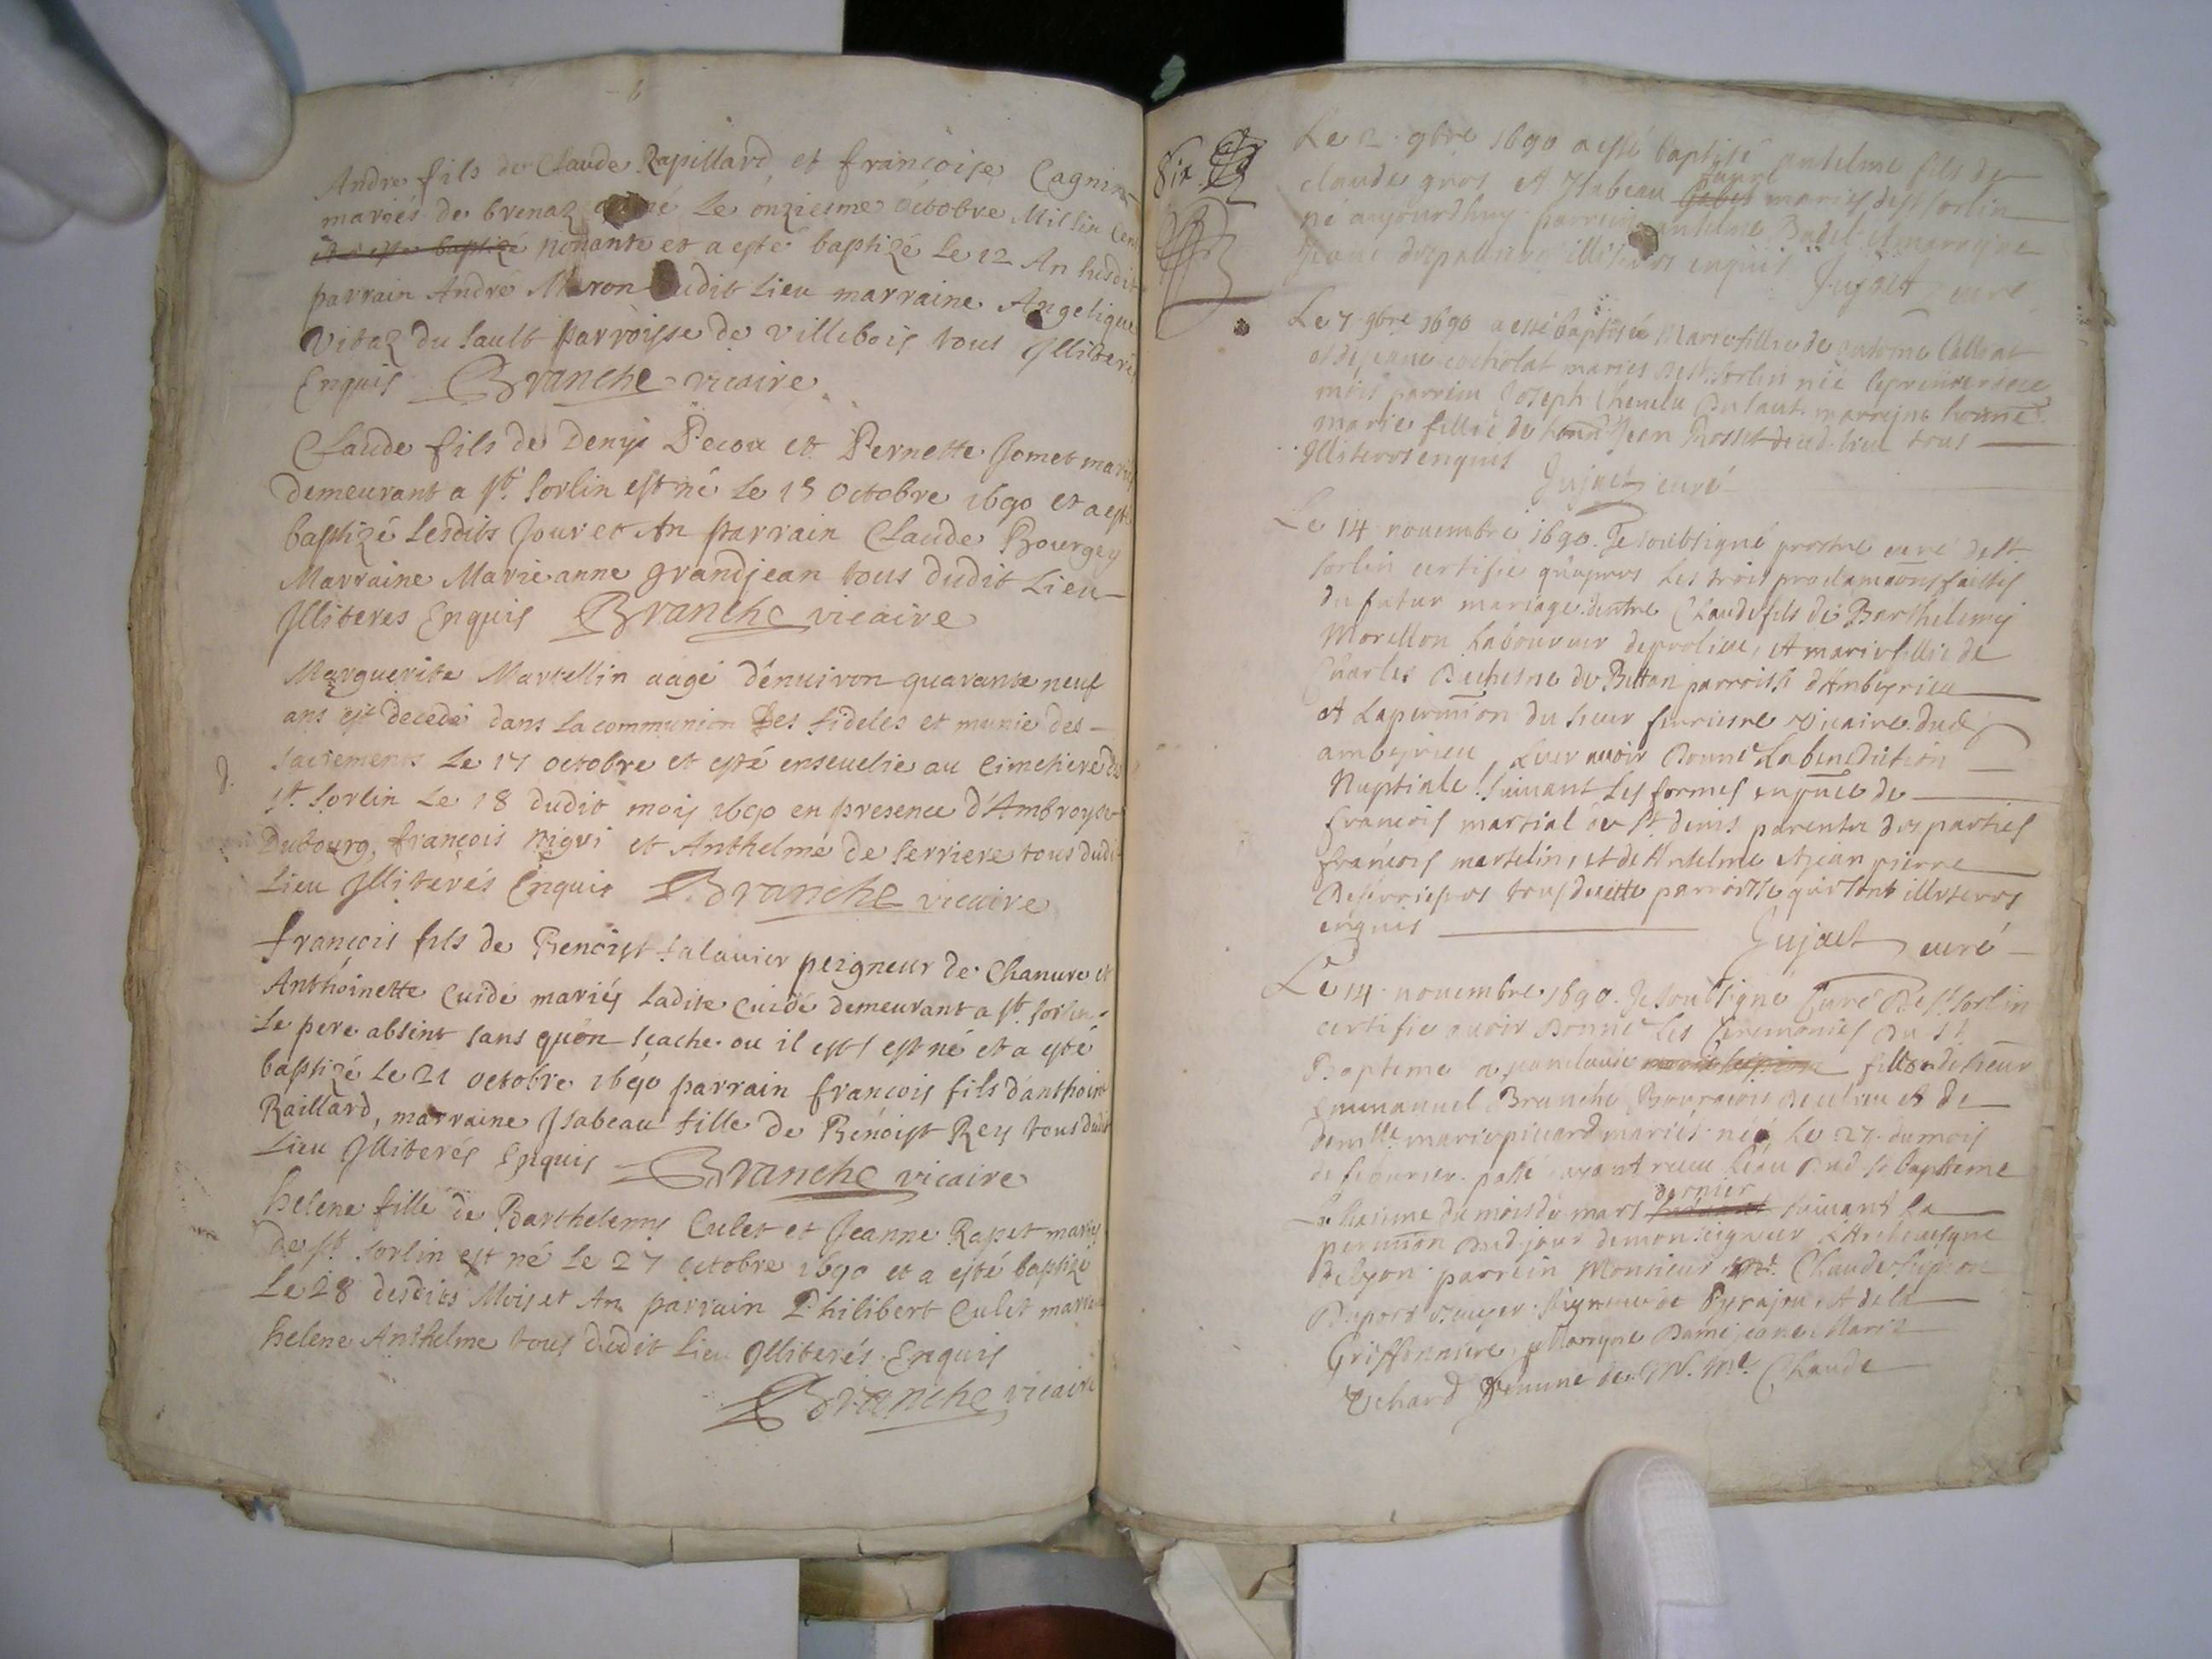 Andre fils de Claude Rapillard et francoise Cagnin
mariés de brenaz né Le onziesme octobre Mil six cent
nonante et a esté baptizé Le 12 An susdit
parrain André Dudit Lieu marraine Angelique
Vitaz du Sault parroisse de villebois tous Jlliterés
Enquis Branche vicaire
Claude fils de Denys Decou et Pernette Jomet mariés
demeurant a st. Sorlin est né Le 15 Octobre 1690 et a esté
baptizé Lesdits Jour et An parrain Claude Bourgey
Marraine Marie anne grandjean tous dudit Lieu
Jlliteres Enquis Branche vicaire
Marguerite Martellin aagé d'enuiron quarante neuf
ans est decedé dans La communion Des fideles et munie des
sacrements Le 17 octobre et esté enseuelie au Cimetiere de
st. Sorlin Le 18 dudit mois 1690 en presence d'Ambroyse
Dubourg, françois et Anthelme de Serriere tous dudit
Lieu Jlliterés Enquis Branche vicaire
françois fils de Benoist salauier peigneur de Chanure et
Anthoinette Cuidé mariés Ladite Cuidé demeurant a st. Sorlin
Le pere absent sans qu'on scache ou il est est né et a esté
baptizé Le 21 octobre 1690 parrain francois fils d'anthoine
Raillard, marraine Jsabeau fille de Benoist Rey tous dudit
Lieu Jlliterés Enquis Branche vicaire
helene fille de Barthelemy Culet et Jeanne Rapet mariés
De st. Sorlin est né Le 27 octobre 1690 et a esté baptizé
Le 28 desdits Mois et An parrain Philibert Culet marraine
helene Anthelme tous dudit Lieu Jlliterés Enquis
Branche vicaire
Six
Le 2. 9bre 1690 a esté baptisé antelme fils de
claude gros et Jsabeau mariés de st Sorlin
né aujourdhuy parrein antelme Budet et marreyne
Jeane illiteres enquis Jujat curé
Le 7 9bre 1690 a esté baptisée Marie fillie de antome Calliat
et de jeane cocholat maries de st. Sorlin née le premier dece
mois parrein Joseph Chenelu Du Saut marreyne honne
marie fillie de hond Jean Rosset dud. lieu tous
Jlliteres enquis Jujat curé
Le 14 nouembre 1690. Je soubsigné prestre curé de st
Sorlin certifie qu'apres Les trois proclamaons faictes
du futur mariage dentre Claude fils de Barthelemy
Morellon Laboureur de prolieu, et marie fillie de
Charles Duchesne de Bettan parroisse d'Ambeyrieu
et La permion du sieur vicaire dud
ambeyrieu, Leur auoir Donné La benediction
Nuptiale Suiuant Les formes en pnce de
francois martial de st denis parentz des parties
francois martelin, et de Antelme et jean pierre
Deserrieres tous de cette parroisse qui sont illiteres
enquis Jujat curé
Le 14. nouembre 1690. Je soubsigné Curé De st Sorlin
certifie auoir Donné Les Ceremonies Du st
Bapteme a jeanclaude fillon de sieur
Emmanuel Branche Bourgeois De ce lieu et de
demlle. marie picard mariés né Le 27. du mois
de feburier passé ayant receu L'eau Dud st bapteme
Le du mois de mars dernier suiuant La
permion Dud jour de monseigneur L'Archeuesque
de lyon parrein Monsieur Mre. Claude
Dupord escuyer seigneur de et de la
Griffonniere, et Marreyne Dame jeane Marie
Vchard femme de M. Me. Claude